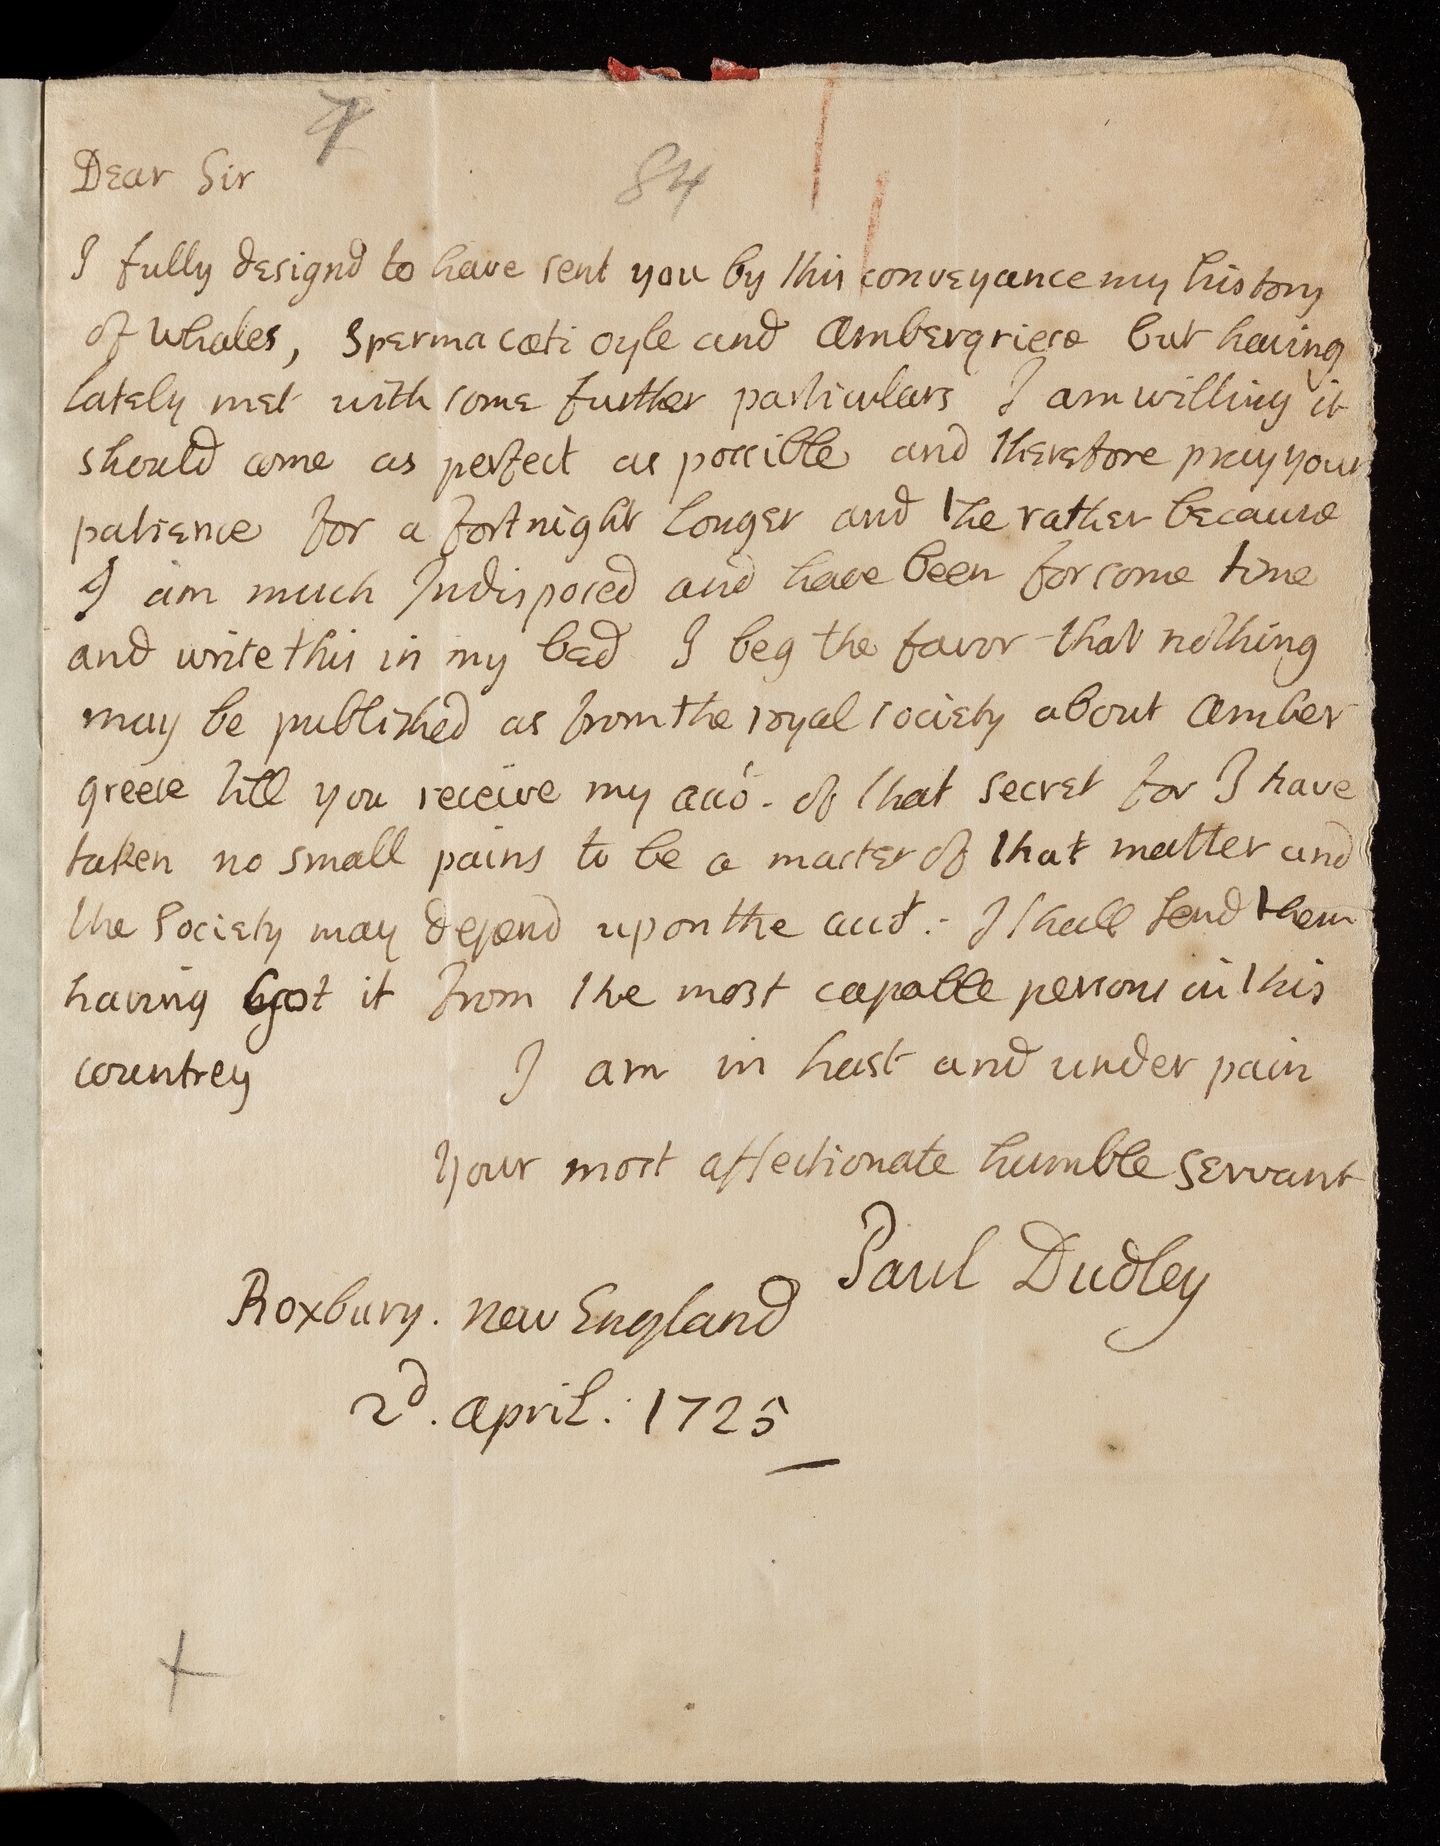 84
Dear Sir
I fully designd to have sent you by this conveyance my history
of Whales, Spermacœti oyle and Ambergriece but having
lately met with some further particulars I am willing it
should come as perfect as possible and therefore pray your
patience for a fortnight longer and the rather because
I am much Indisposed and have been for some time
and write this in my bed I beg the favor that nothing
may be published as from the royal society about Amber
greece till you receive my acco. of that secret for I have
taken no small pains to be a master of that matter and
the Society may depend upon the acct. I shall send them
having Got it from the most capable persons in this
countrey I am in hast and under pain
Your most affectionate humble servant
Paul Dudley
Roxbury. New England
2d. April. 1725